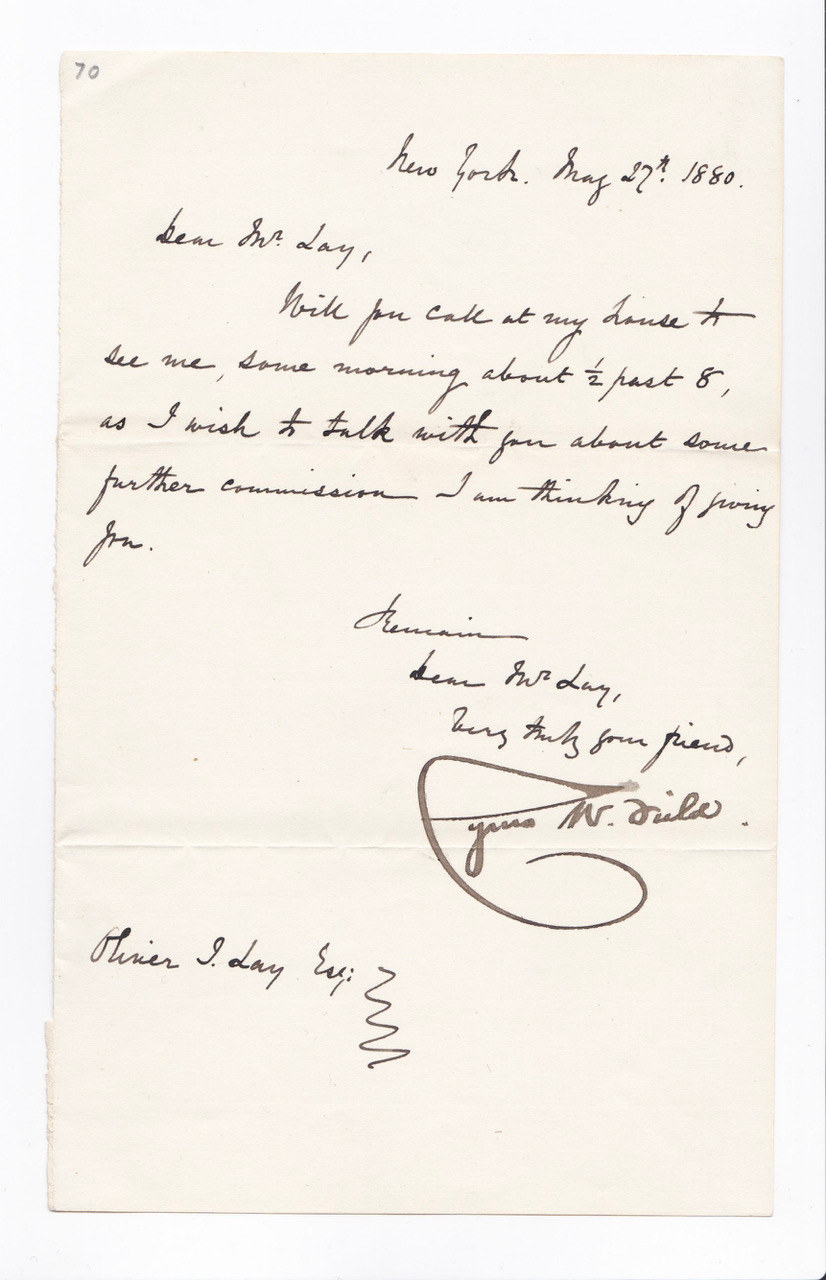 70
New York. May 27th. 1880.
Dear Mr. Lay,
Will you call at my house to
see me, some morning about ½ past 8,
as I wish to talk with you about some
further commission I am thinking of giving
you.
Remain
Dear Mr Lay,
Very truly your friend,
Cyrus W. Field.
Oliver I. Lay Esq: